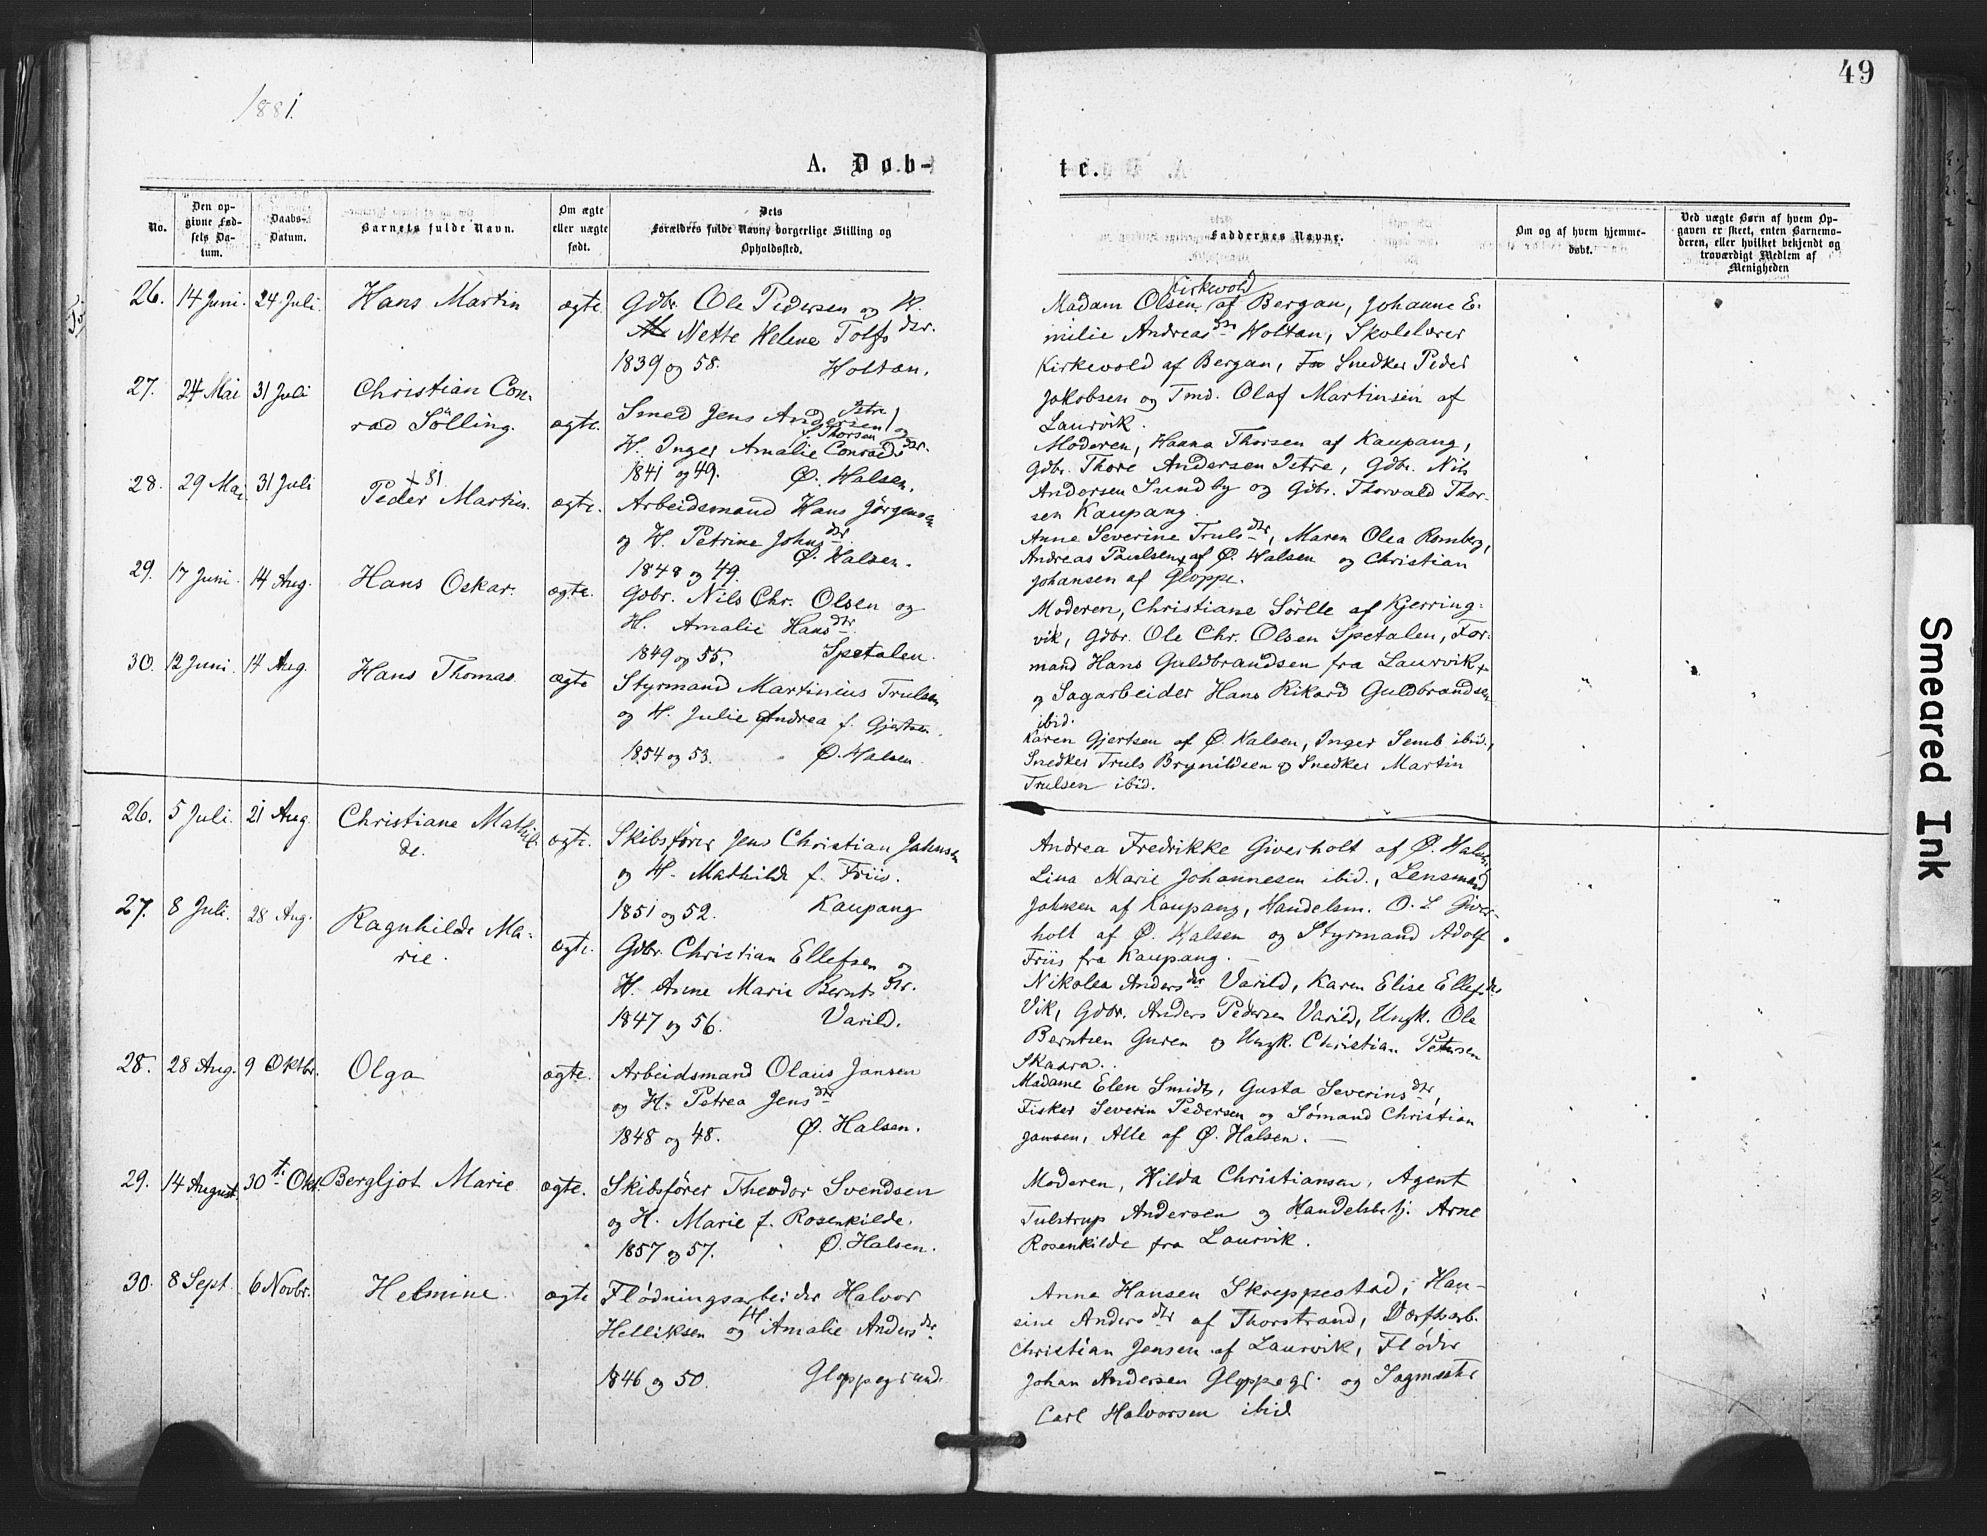 1881.
49
A. Døb-
te.
No.
Den op-
givne Fød-
sels Da-
tum.
Daabs-
Datum.
Barnets fulde Navn.
Om ægte
eller uægte
født.
Dets
Forældres fulde Navn, borgerlige Stilling og
Opholdssted.
Faddernes Navne.
Om og af hvem hjemme-
døbt.
Ved uægte Børn af hvem Op-
gaven er skeet, enten Barnemo-
deren, eller hvilket bekjendt og
troværdigt Medlem af
Menigheden
26. 14 Juni. 24 Juli. Hans Martin ægte. Gdbr. Ole Pedersen og H.
Nette Helene Tolfsdtr.
1839 og 58. Holtan.
Kirkevold
Madam Olsen af Bergan, Johanne E-
milie Andreasdtr Holtan, Skolelærer
Kirkevold af Bergan, Snedker Peder
Jakobsen og Tmd. Olaf Martinsen af
Laurvik.
27. 24 Mai 31 Juli Christian Con-
rad Sölling. ægte. Smed Jens Andersen (Istre) og
f. Thorsen
H. Inger Amalie Conradsdtr.
1841 og 49. Ø. Halsen.
Moderen, Hanna Thorsen af Kaupang,
Gdbr. Thore Andersen Istre, Gdbr. Nils
Andersen Sundby og Gdbr. Thorvald Thor-
sen Kaupang.
28. 29 Mai 31 Juli
+ 81
Peder Martin. ægte. Arbeidsmand Hans Jörgensen
og H. Petrine Johnsdtr.
1848 og 49. Ø. Halsen.
Anne Severine Trulsdtr, Maren Olea Romberg,
Andreas Paulsen af Ø. Halsen og Christian
Johansen af Gloppe.
29. 17 Juni. 14 Aug. Hans Oskar. ægte. Gdbr. Nils Chr. Olsen og
H. Amalie Hansdtr
1849 og 55. Spetalen.
Moderen, Christiane Sörlle af Kjerring-
vik, Gdbr. Ole Chr. Olsen Spetalen, For-
mand Hans Guldbrandsen fra Laurvik
og Sagarbeider Hans Rikard Guldbrandsen
ibid.
30. 12 Juni. 14 Aug. Hans Thomas ægte Styrmand Martinius Trulsen
og H. Julie Andrea f. Gjertsen.
1854 og 53. Ø. Halsen.
Karen Gjertsen af Ø. Halsen, Inger Semb ibid.,
Snedker Truls Brynildsen og Snedker Martin
Trulsen ibid.
26. 5 Juli. 21 Aug. Christiane Mathil-
de. ægte. Skibsfører Jens Christian Johnsen
og H. Mathilde f. Friis.
1851 og 52. Kaupang
Andrea Fredrikke Giverholt af Ø. Halsen,
Lina Marie Johannesen ibid., Lensmand
Johnsen af Kaupang, Handelsm. O. L. Giver-
holt af Ø. Halsen og Styrmand Adolf
Friis fra Kaupang.
27. 8 Juli. 28 Aug. Ragnhilde Ma-
rie. ægte. Gdbr. Christian Ellefsen og
H. Anne Marie Berntsdtr.
1847 og 56. Varild.
Nikolea Andersdtr Varild, Karen Elise Ellefsdtr
Vik, Gdbr. Anders Pedersen Varild, Ungk. Ole
Berntsen Guren og Ungk. Christian Petersen
Skaara.
28. 28 Aug. 9 Oktbr. Olga ægte. Arbeidsmand Olaus Jansen
og H. Petrea Jensdtr
1848 og 48. Ø. Halsen.
Madame Elen Smidt, Gusta Severinsdtr,
Fisker Severin Pedersen og Sømand Christian
Jansen, Alle af Ø. Halsen.
29. 14 August 30te Okt. Bergljot Marie ægte. Skibsfører Theodor Svendsen
og H. Marie f. Rosenkilde.
1857 og 57. Ø. Halsen.
Moderen, Hilda Christiansen, Agent
Tulstrup Andersen og Handelsbetj. Arne
Rosenkilde fra Laurvik.
30. 8 Sept. 6 Novbr. Helmine. ægte Flødningsarbeider Halvor
Helliksen og H Amalie Andersdtr
1846 og 50. Gloppegrund.
Anna Hansen Skreppestad, Han-
sine Andersdtr af Thorstrand, Værftsarb.
Christian Jensen af Laurvik, Fløder
Johan Andersen Gloppegr. og Sagmester
Carl Halvorsen ibid
Smeared Ink